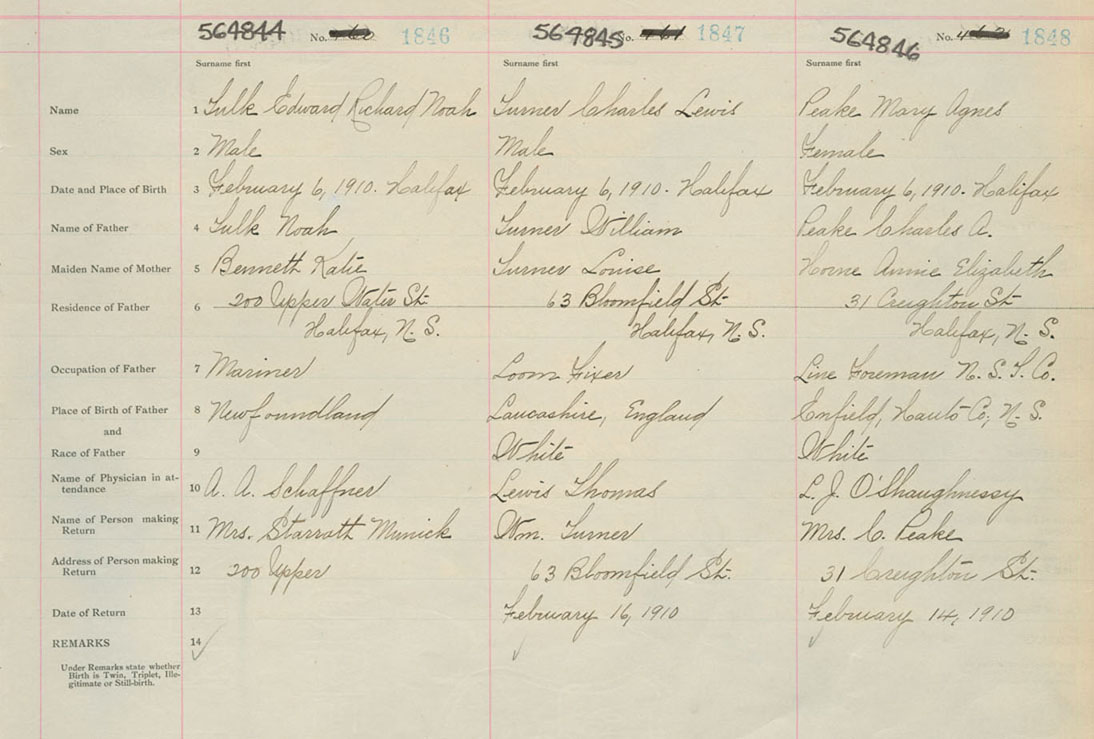 564844 No. 1846 564845 No. 1847 564846 No. 1848
Surname first Surname first Surname first
Name 1 Tulk Edward Richard Noah Turner Charles Lewis Peake Mary Agnes
Sex 2 Male Male Female
Date and Place of Birth 3 February 6, 1910. Halifax February 6, 1910. Halifax February 6, 1910. Halifax
Name of Father 4 Tulk Noah Turner William Peake Charles A.
Maiden Name of Mother 5 Bennett Katie Turner Louise Horne Annie Elizabeth
Residence of Father 6 200 Upper Water St. 63 Bloomfield St. 31 Creighton St.
Halifax, N. S. Halifax, N. S. Halifax, N. S.
Occupation of Father 7 Mariner Loom Fixer Line Foreman N. S. T. Co.
Place of Birth of Father 8 Newfoundland Lancashire, England Enfield, Hants Co., N. S.
and
Race of Father 9 White White
Name of Physician in at-
tendance 10 A. A. Schaffner Lewis Thomas L. J. O'Shaughnessy
Name of Person making
Return 11 Mrs. Starratt Wm. Turner Mrs. C. Peake
Address of Person making
Return 12 200 Upper 63 Bloomfield St. 31 Creighton St.
Date of Return 13 February 16, 1910 February 14, 1910
REMARKS 14
Under Remarks state whether
Birth is Twin, Triplet, Ille-
gitimate or Still-birth.